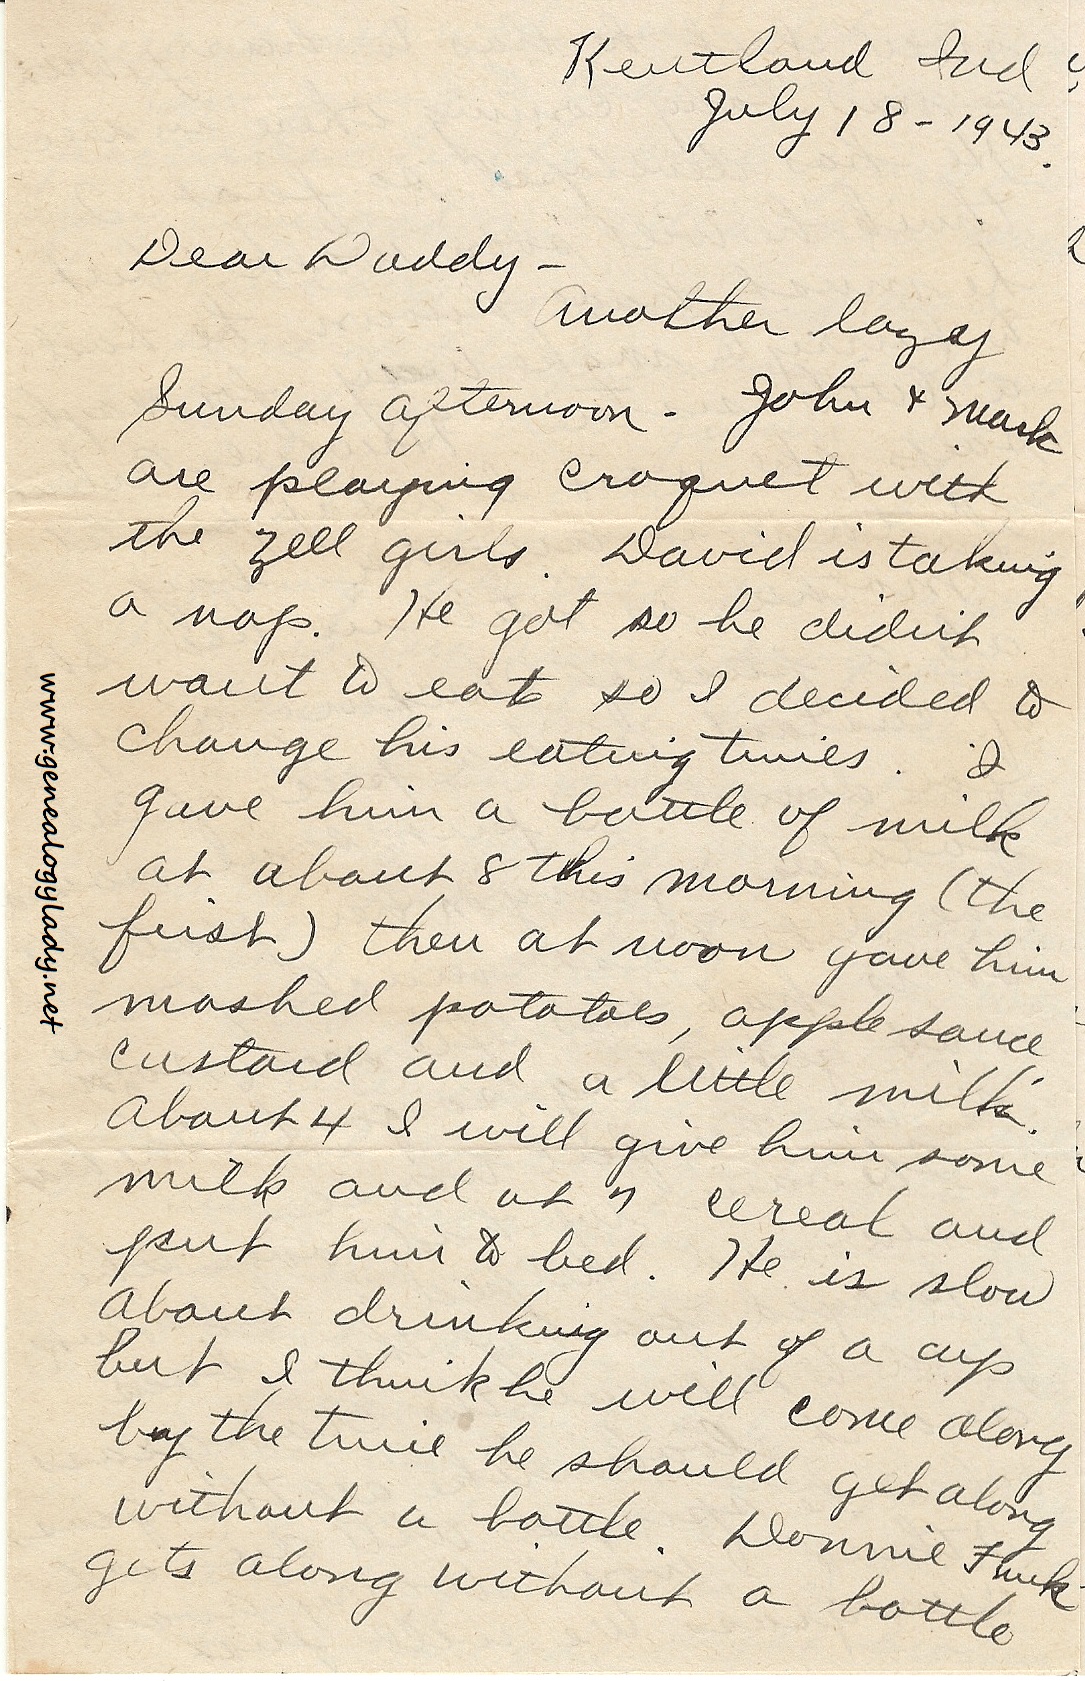 Kentland Ind
July 18 - 1943.
Dear Daddy -
Another lazy
Sunday afternoon - John & Mark
are playing croquet with
the Zell girls. David is taking
a nap. He got so he didn't
want to eat so I decided to
change his eating times. I
gave him a bottle of milk
at about 8 this morning (the
first) then at noon gave him
mashed potatoes, apple sauce
custard and a little milk.
About 4 I will give him some
milk and at 7 cereal and
put him to bed. He is slow
about drinking out of a cup
but I think he will come along
by the time he should get along
without a bottle. Donnie Funk
gets along without a bottle
www.genealogylady.net